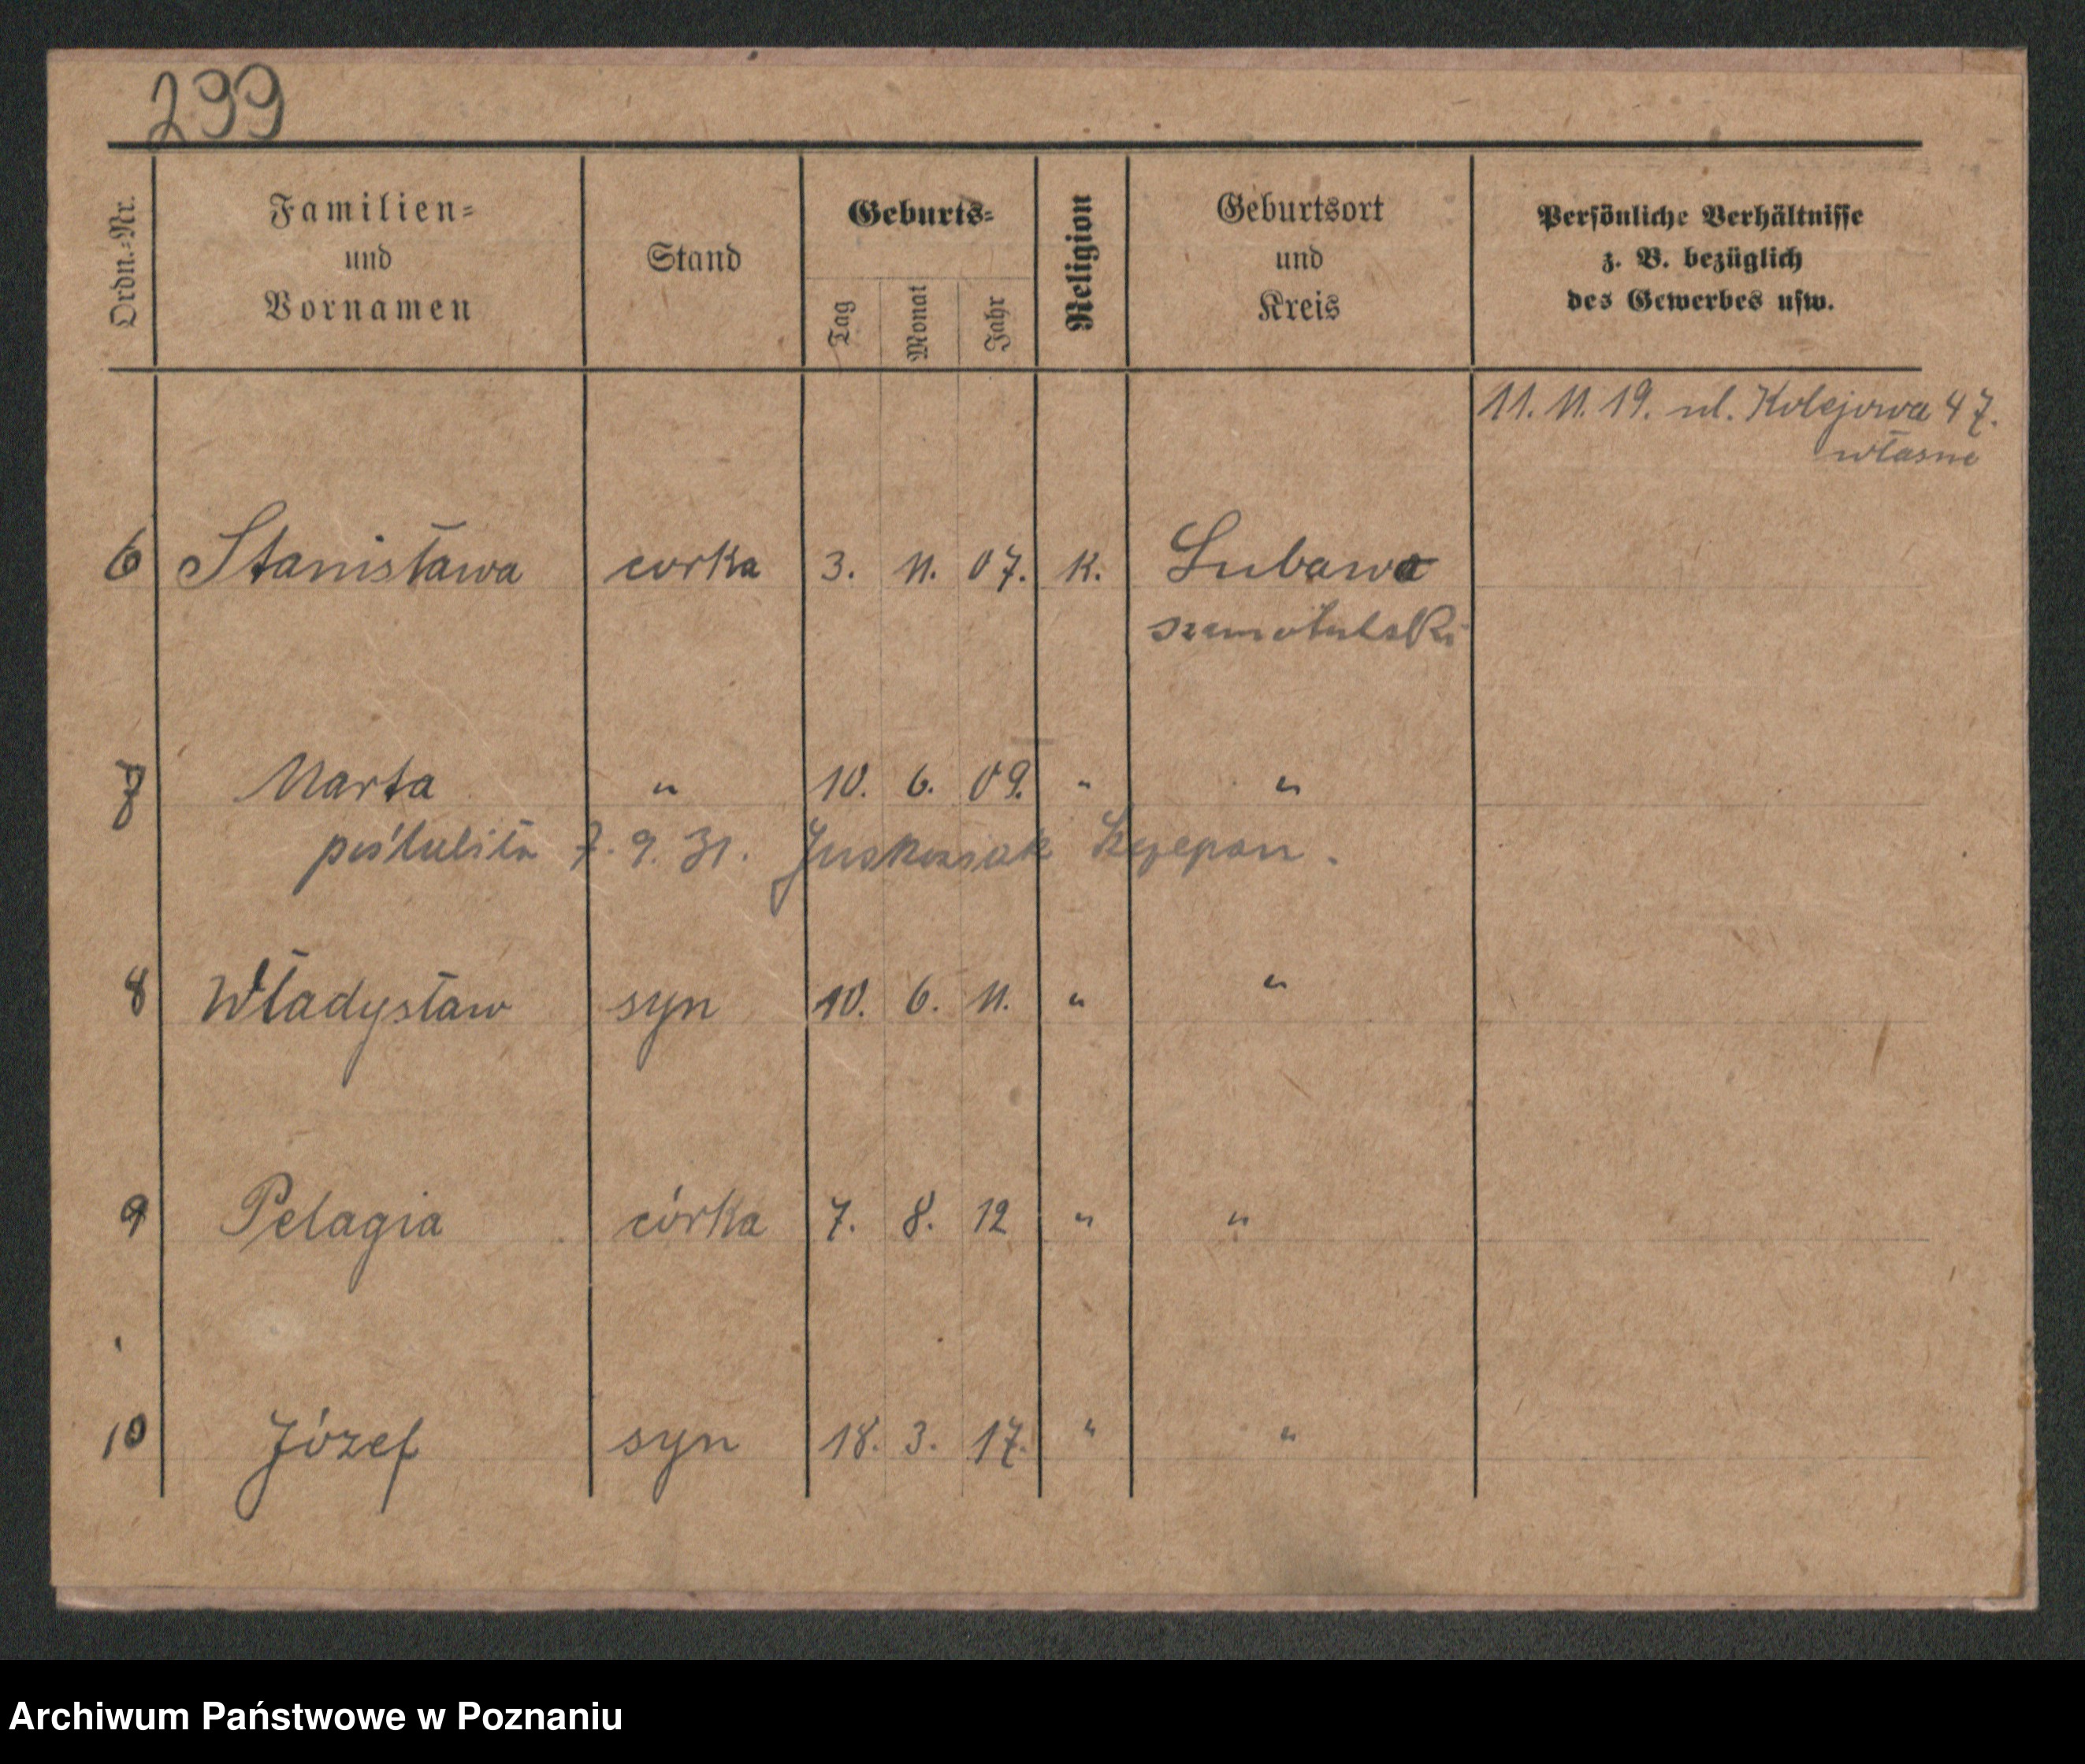 299
Ordn.-Nr. Familien- und Vornamen Stand Geburts- Tag Monat Jahr Religion Geburtsort und Kreis Persönliche Verhältnisse z. B. bezüglich des Gewerbes usw.
11. 11. 19. ul. Kolejowa 47.
własne
6 Stanisława corka 3. 11. 07. k. Lubawa
szamotulski
7 Marta " 10. 6. 09. " "
poślubiła 7. 9. 31. Szczepan.
8 Władysław syn 10. 6. 11. " "
9 Pelagia córka 7. 8. 12 " "
10 Józef syn 18. 3. 17. " "
Archiwum Państwowe w Poznaniu